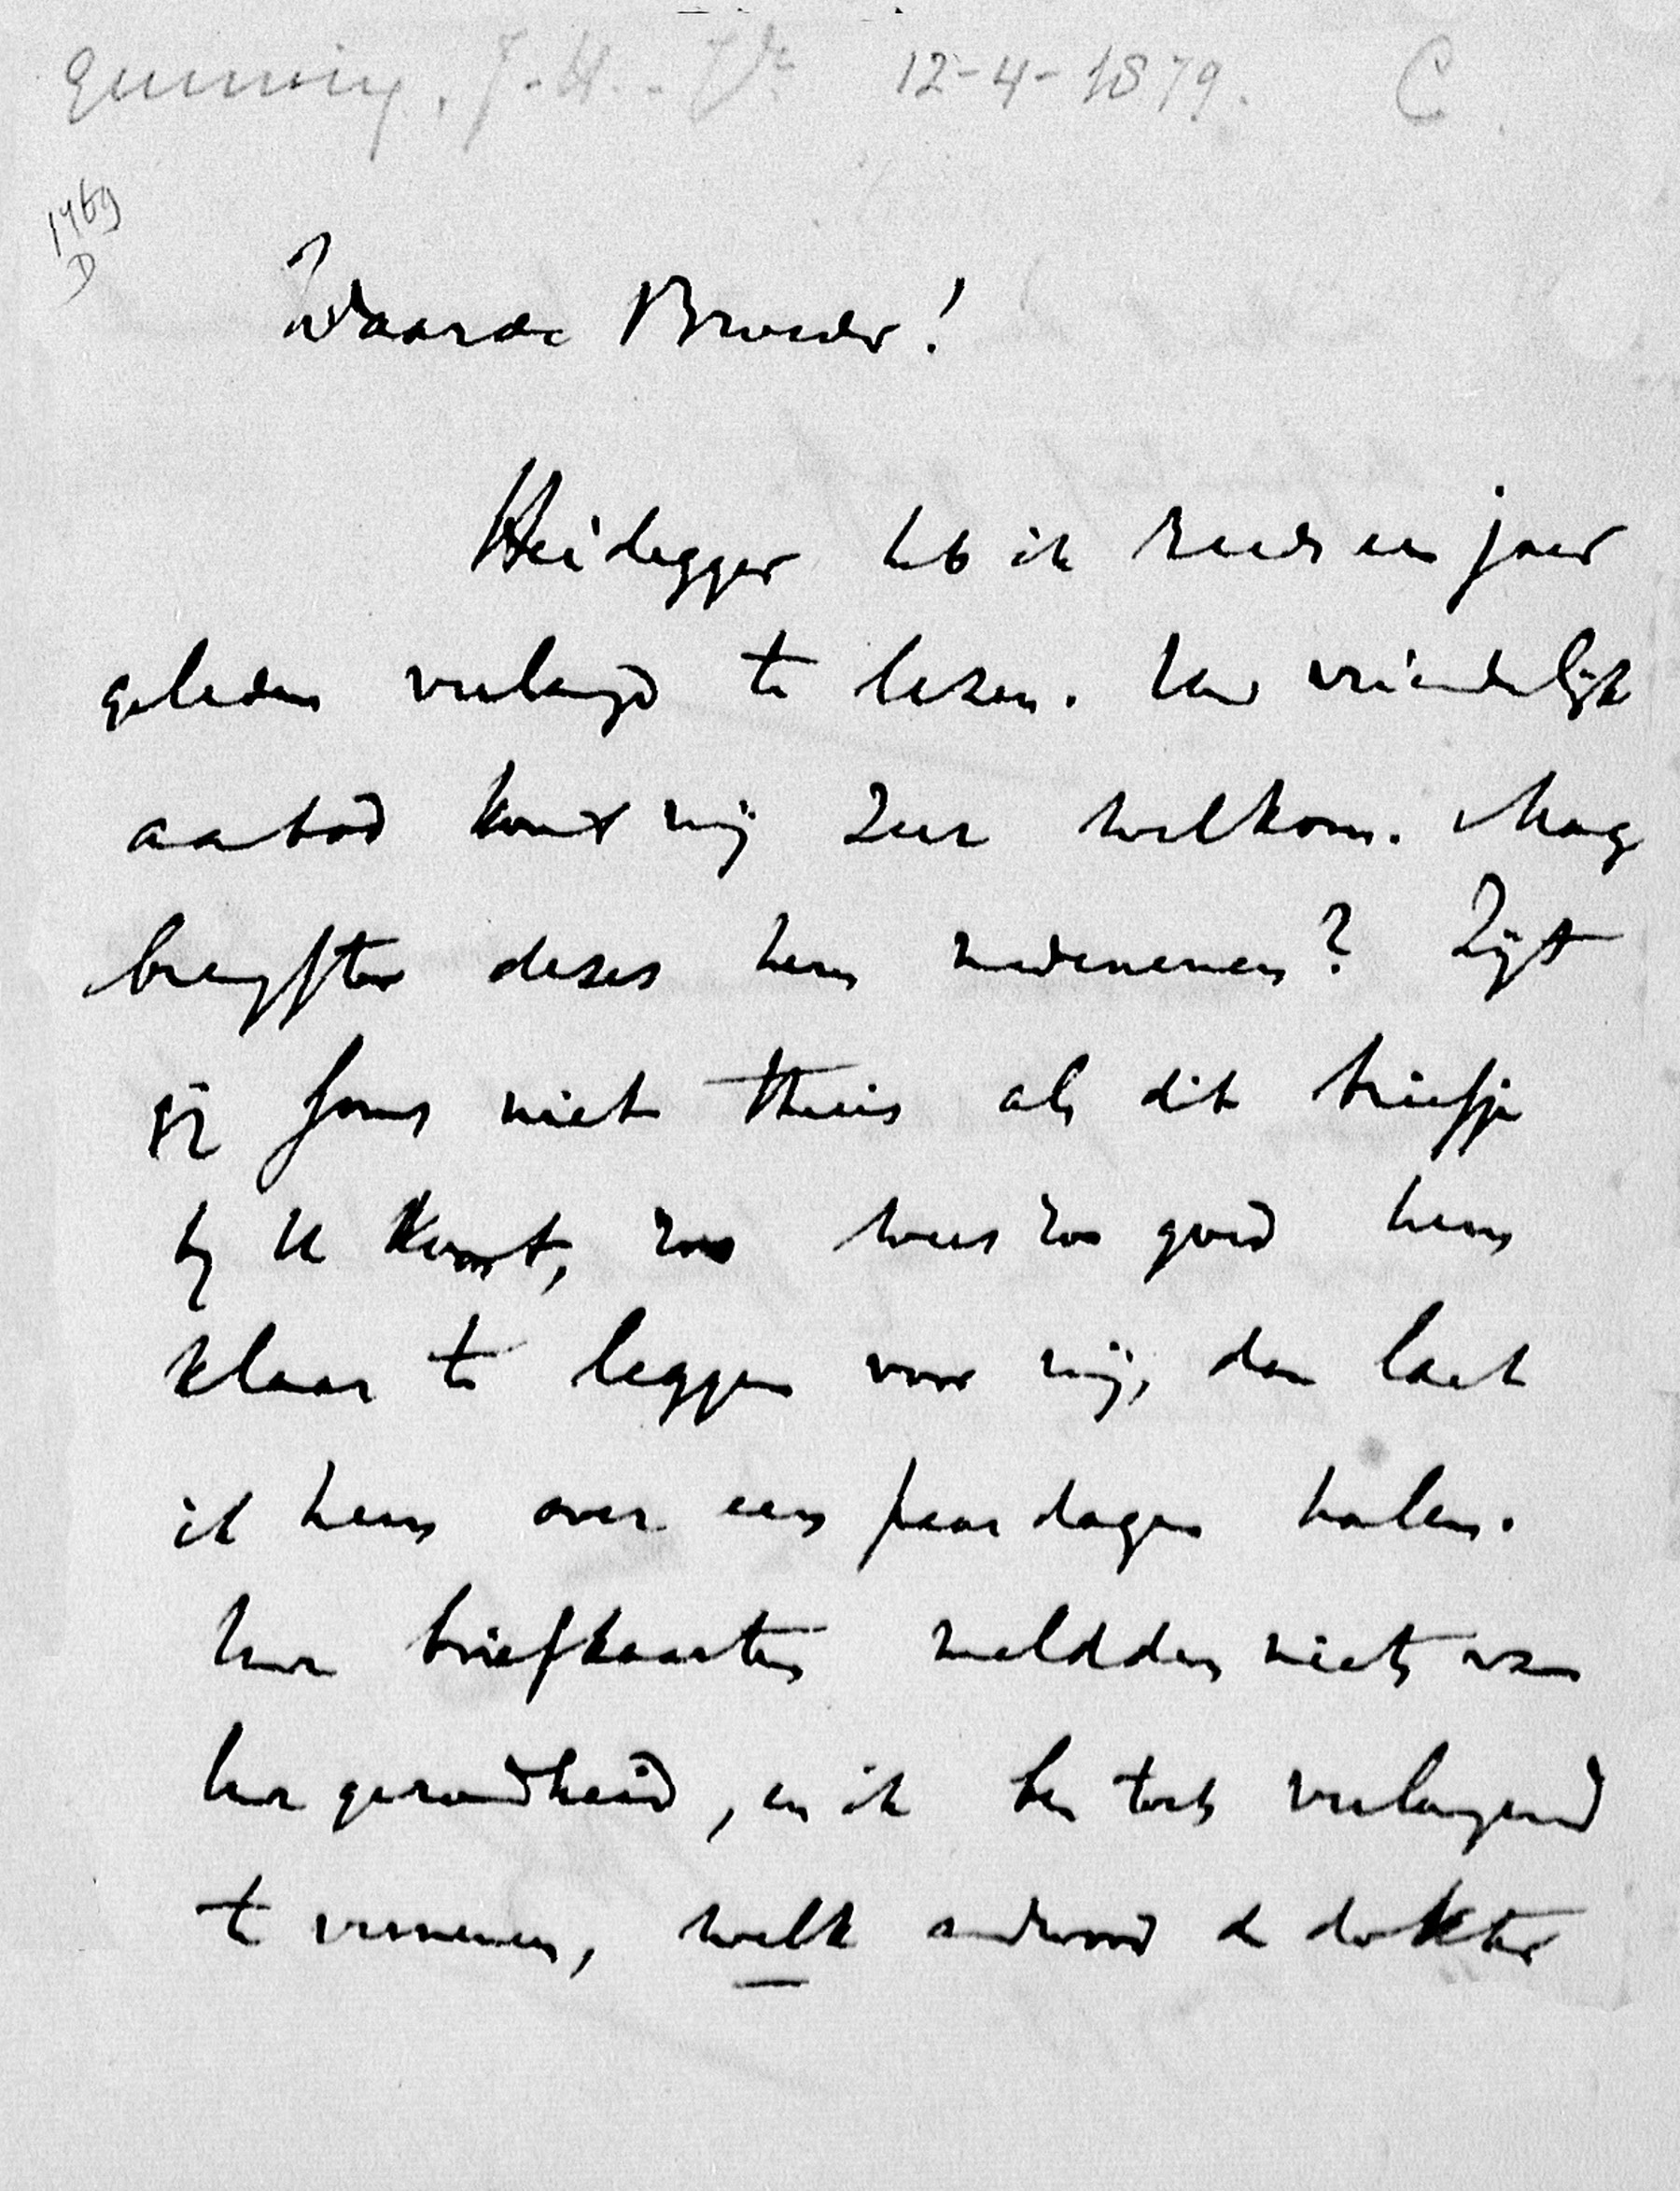 Gunning, J.H. Jr. 12-4-1879. C.
1469
D
Waarde Broeder!
Heidegger heb ik reeds een jaar
geleden verlangd te lezen. Uw vriendelijk
aanbod komt mij zeer welkom. Mag
brengster dezes hem medenemen? Zijt
gij soms niet thuis als dit briefje
bij U komt, zoo wees zoo goed hem
klaar te leggen voor mij, dan laat
ik hem over een paar dagen halen.
Uwe briefkaarten meldden niets van
Uwe gezondheid, en ik ben toch verlangend
te vernemen, welk andwoord de dokter